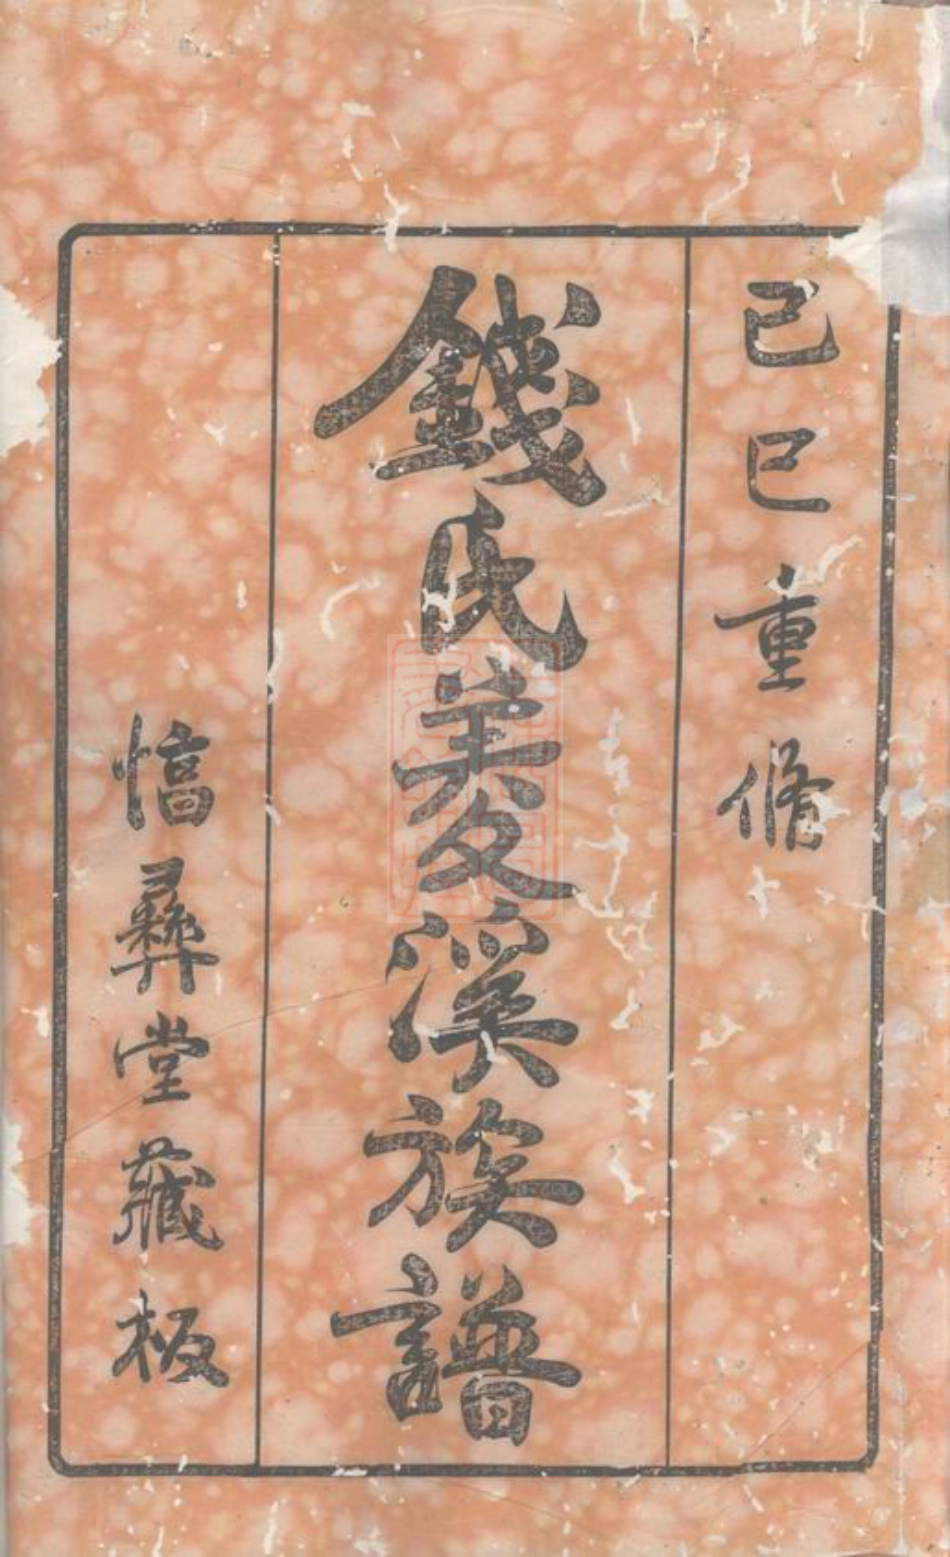 己巳重脩
錢氏菱溪族譜
惇彝堂藏板